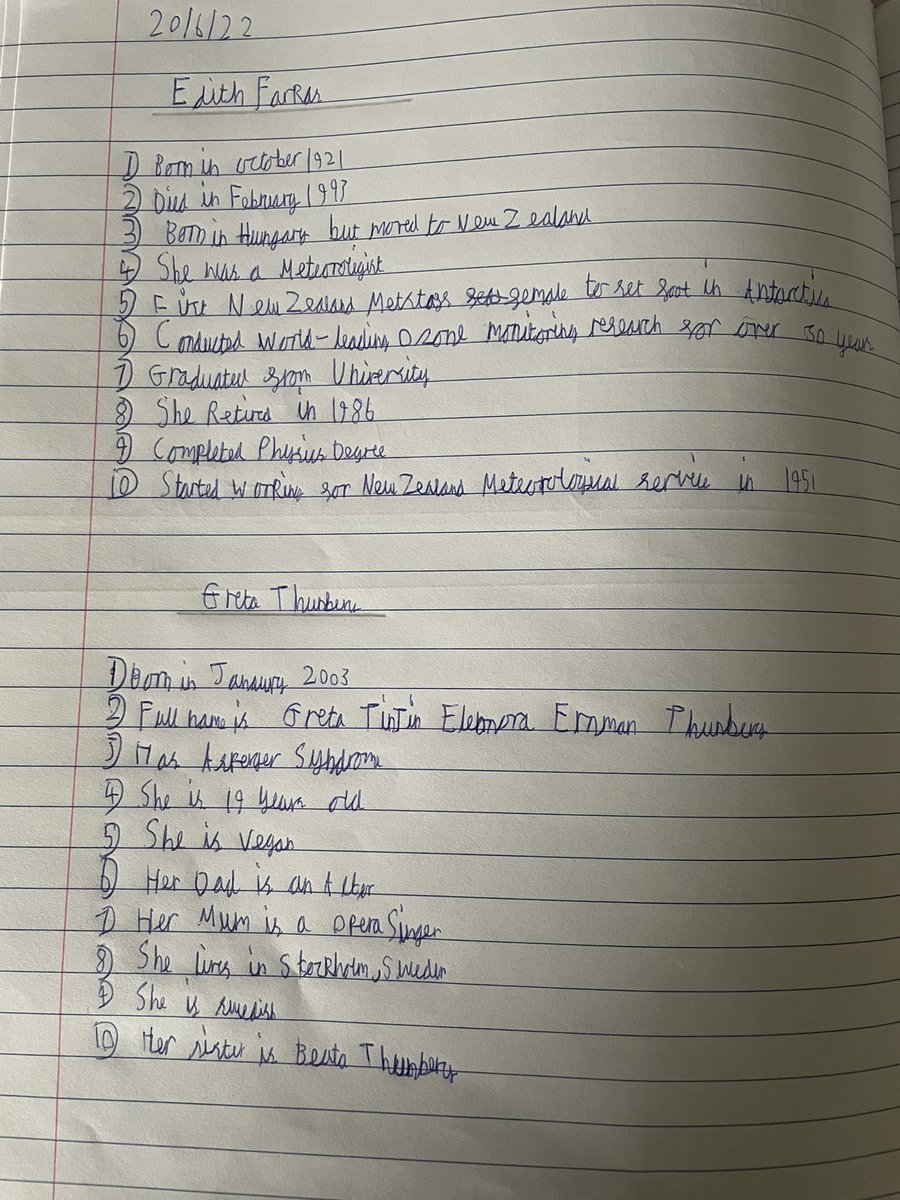 20/6/22
Edith Farkas
① Born in october 1921
② Died in February 1993
③ Born in Hungary but moved to New Zealand
④ She was a Meteorologist
⑤ First New Zealand female to set foot in Antarctica
⑥ Conducted world-leading Ozone monitoring research for over 30 years
⑦ Graduated from University
⑧ She Retired in 1986
⑨ Completed Physics Degree
⑩ Started working for New Zealand Meteorological service in 1951
Greta Thunberg
① Born in Janaury 2003
② Full name is Greta TinTin Eleonora Ernman Thunberg
③ Has Asperger Syndrome
④ She is 19 years old
⑤ She is vegan
⑥ Her Dad is an Actor
⑦ Her Mum is a opera Singer
⑧ She lives in Stockholm, Sweden
⑨ She is swedish
⑩ Her sister is Beata Thunberg